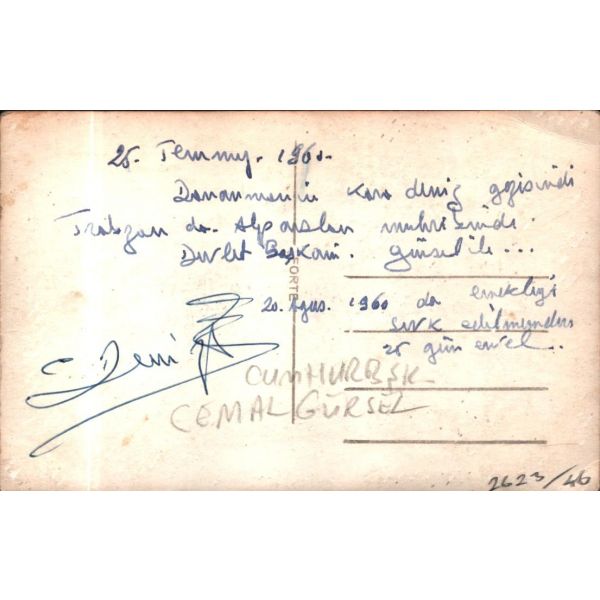 25. Temmuz. 1960.
Donanmanın Kara deniz gezisinde
Trabzon da. Alparslan muhribinde.
Devlet Başkanı. Gürsel ile ...
20. Agus. 1960 da emekliği
sevk edilmemden
25 gün evvel..
FORTE
C Deniz
CUMHURBŞK
CEMAL GÜRSEL
2623/46